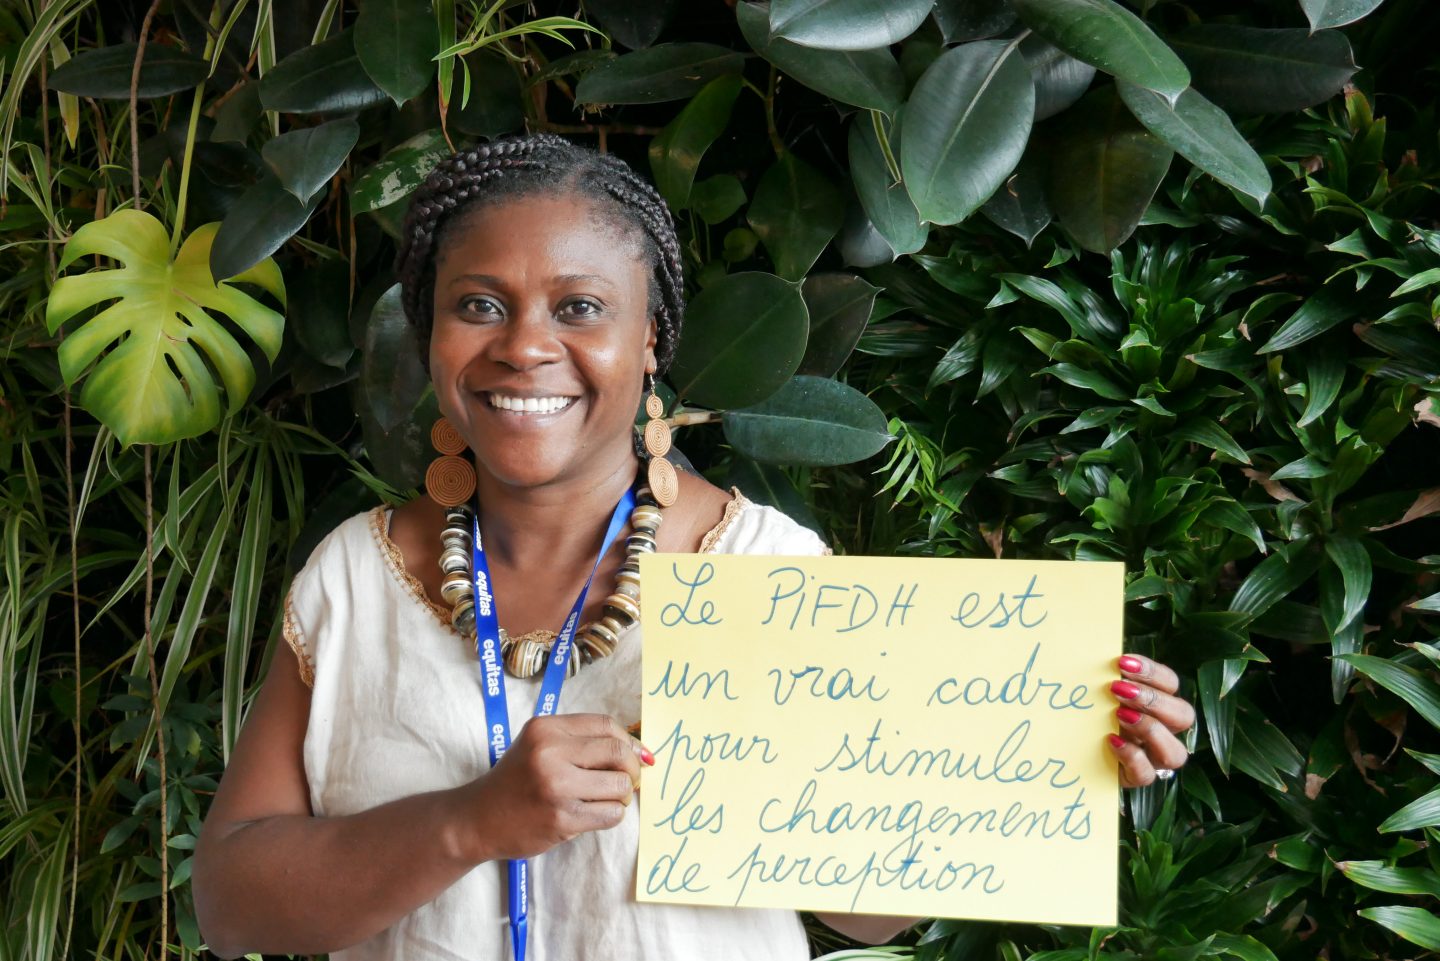 Le PIFDH est
un vrai cadre
pour stimuler
les changements
de perception
equitas
equitas
equitas
equitas